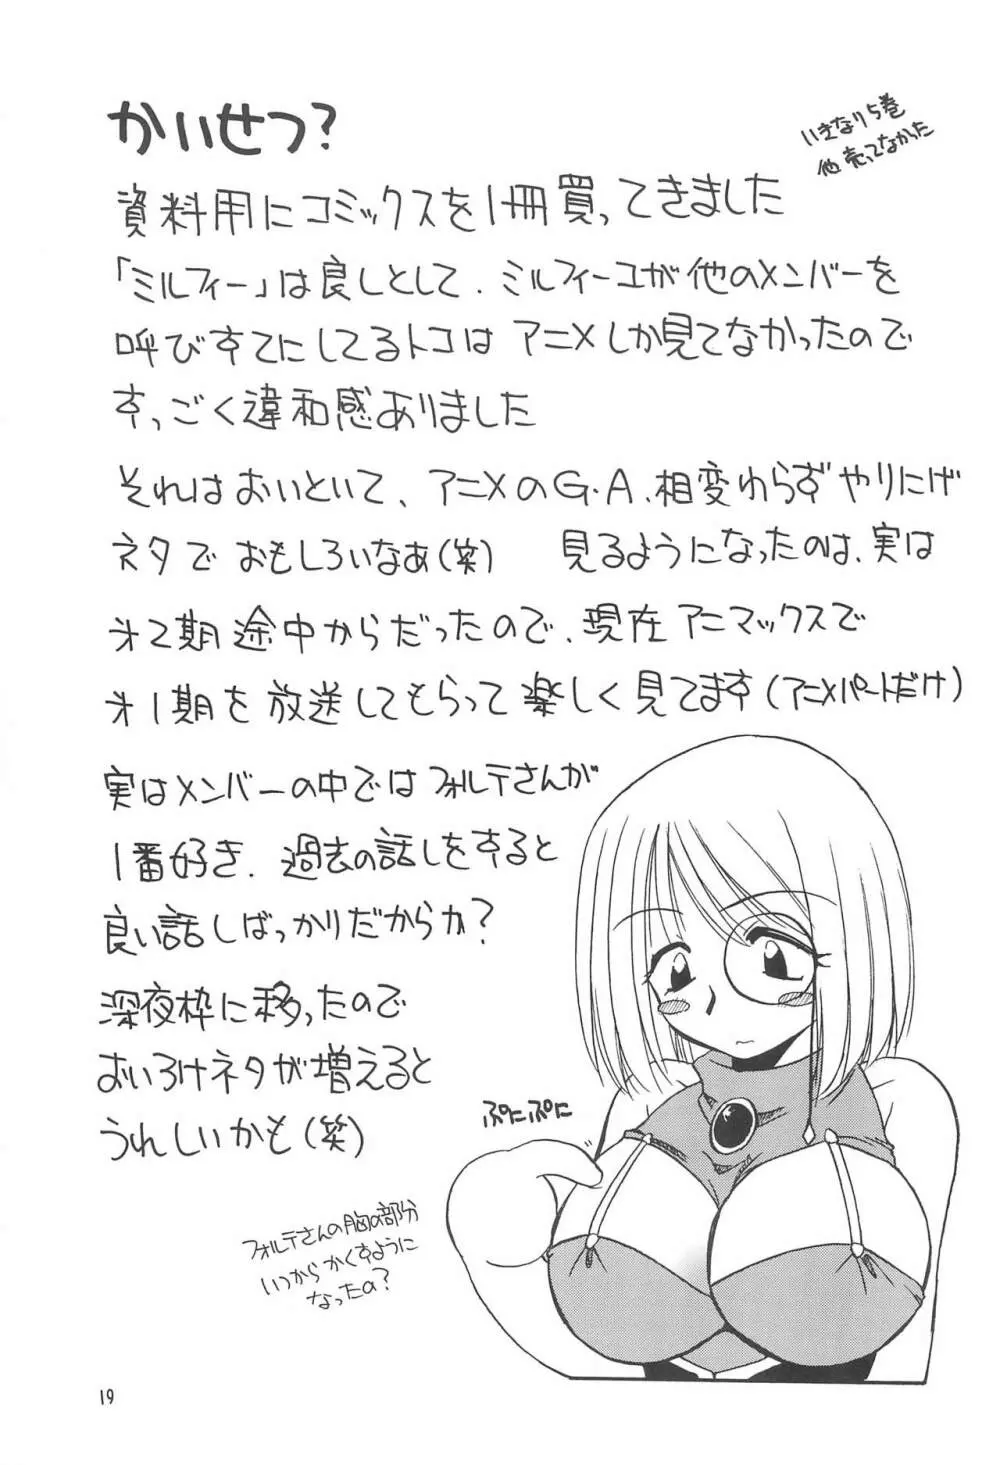 かいせつ?
いきなり5巻
他売ってなかった
資料用にコミックスを1冊買ってきました
「ミルフィー」は良しとして、ミルフィーユが他のメンバーを
呼びすてにしてるトコはアニメしか見てなかったので
すっごく違和感ありました
それはおいといて、アニメのG・A、相変わらずやりにげ
ネタでおもしろいなあ(笑) 見るようになったのは、実は
オ2期途中からだったので、現在アニマックスで
オ1期を放送してもらって楽しく見てます(アニメパートだけ)
実はメンバーの中ではフォルテさんが
1番好き、過去の話しをすると
良い話しばっかりだからカ?
深夜枠に移ったので
おいろけネタが増えると
うれしいかも(笑)
ぷにぷに
フォルテさんの胸の部分
いつからかくすように
なったの?
19